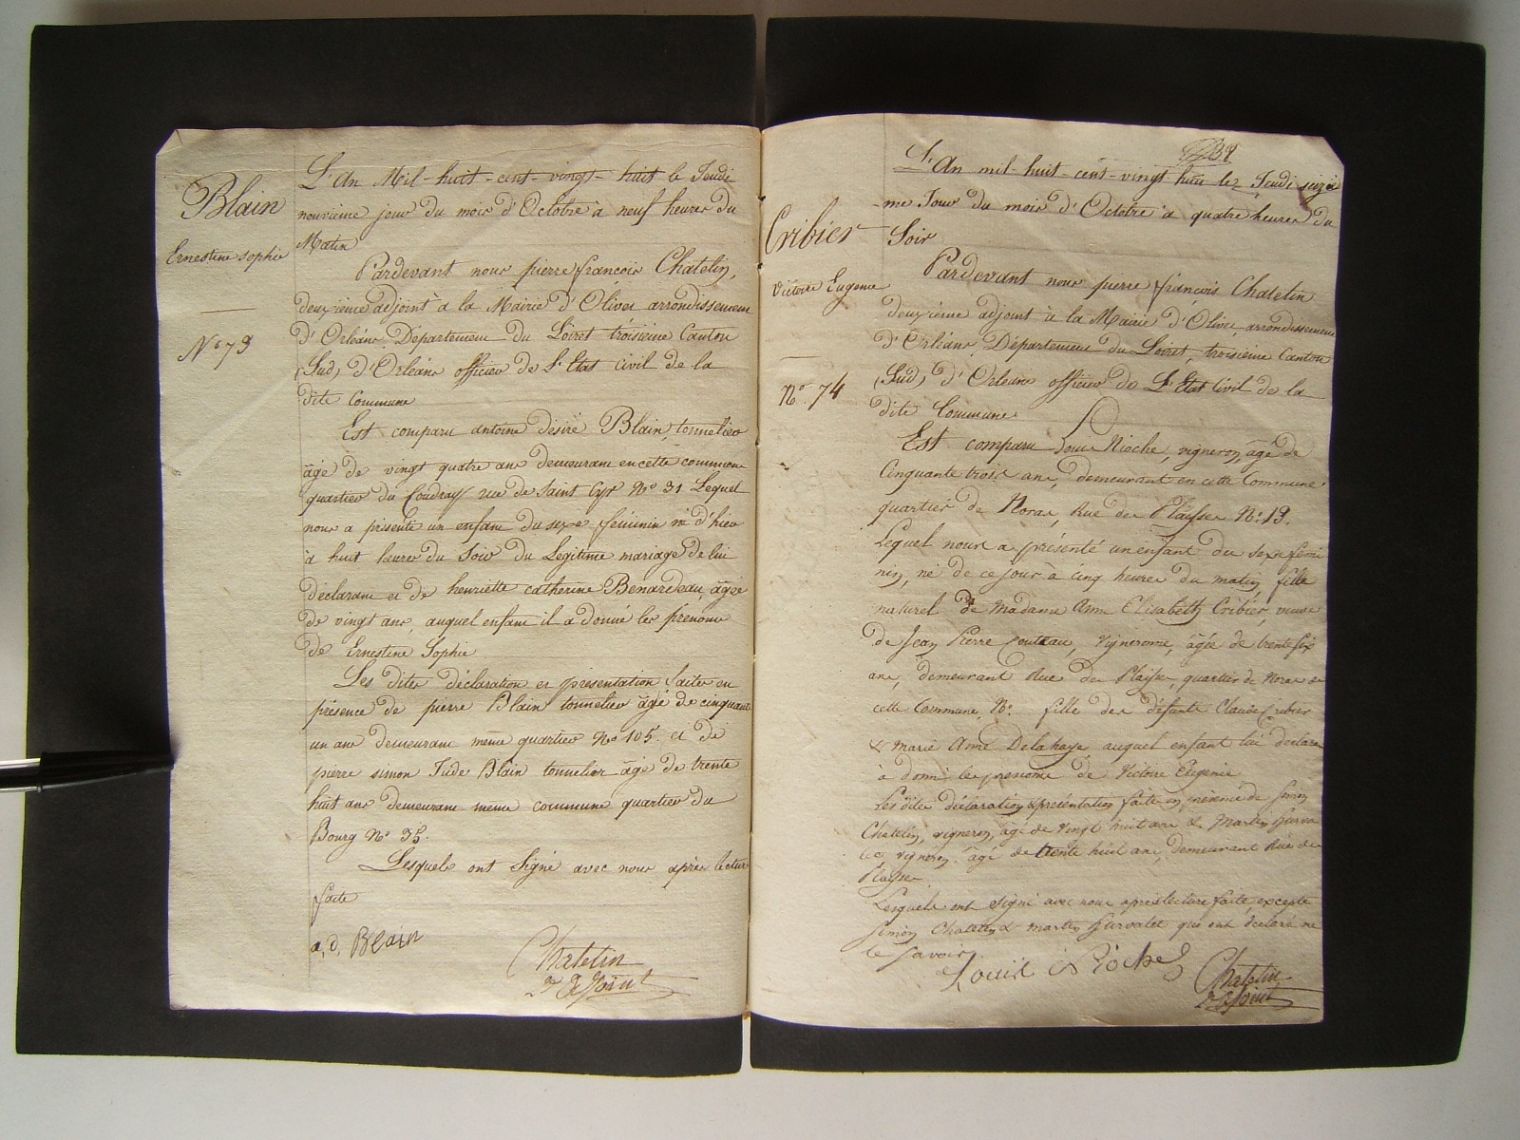 Blain
Ernestine sophie
N° 73
L'An Mil-huit-cent-vingt-huit le Jeudi
neuvième jour du mois d'Octobre à neuf heures du
Matin
Pardevant nous pierre françois Chatelin,
deuxième adjoint à la Mairie d'Olivet arrondissement
d'Orléans Département du Loiret troisième Canton
(Sud) d'Orléans officier de L'Etat civil de la
dite Commune
Est comparu antoine désiré Blain, tonnelier
âgé de vingt quatre ans demeurant en cette commune
quartier du Coudray rue de Saint Cyr N° 31 Lequel
nous a présenté un enfant du sexe féminin né d'hier
à huit heures du Soir du Legitime mariage de lui
déclarant et de henriette catherine Benardeau, âgée
de vingt ans, auquel enfant il a donné les prénoms
de Ernestine Sophie
Les dites déclaration et présentation faites en
présence de pierre Blain tonnelier âgé de cinquante
un ans demeurant même quartier N° 105. et de
pierre simon Jude Blain tonnelier âgé de trente
huit ans demeurant même commune quartier du
Bourg N° 35.
Lesquels ont Signé avec nous après lecture
faite
a, d, Blain
Chatelin
2e Adjoint
Cribier
Victoire Eugenie
N° 74
L'An mil-huit-cent-vingt huit le Jeudi seizie
me Jour du mois d'Octobre à quatre heures du
Soir
Pardevant nous pierre françois Chatelin
deuxième adjoint à la Mairie d'Olivet, arrondissement
d'Orléans, Département du Loiret, troisième Canton
(Sud) d'Orléans officier de L'Etat Civil de la
dite Commune.
Est comparu Louis Rioche, vigneron, âgé de
Cinquante trois ans, demeurant en cette Commune
quartier de Noras, Rue de Plaisse N° 19.
Lequel nous a présenté un enfant du sexe femi
nin, né de ce jour à cinq heures du matin, fille
naturel de Madame Anne Elisabeth Cribier, veuve
de Jean Pierre Couteau, Vigneronne, âgée de trente six
ans, demeurant Rue de Plaisse, quartier de Noras en
cette Commune, N° fille des défunts Claude Cribier
& Marie Anne Delahaye, auquel enfant lui déclare
à donné les prenoms de Victoire Eugenie
Les dites déclaration & présentation faite en présence de Simon
Chatelin, vigneron, âgé de Vingt huit ans & Martin
vigneron, âgé de trente huit ans, demeurant Rue de
Plaisse.
Lesquels ont Signé avec nous après lecture faite, excepté
Simon Chatelin & Martin qui ont déclaré ne
le Savoir.
Louis Rioche
Chatelin
2e Adjoint